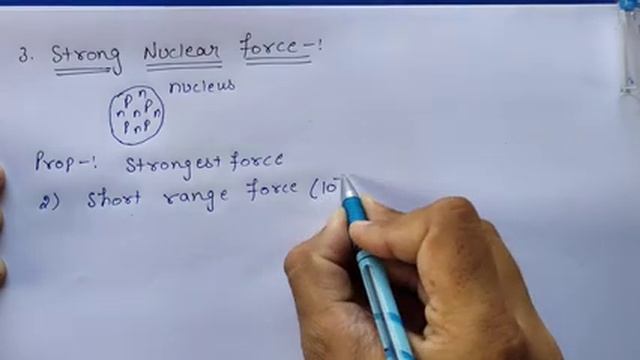 3. Strong Nuclear force -:
nucleus
p n
n n p n
p n p
Prop -: Strongest force
2) Short range force (10-